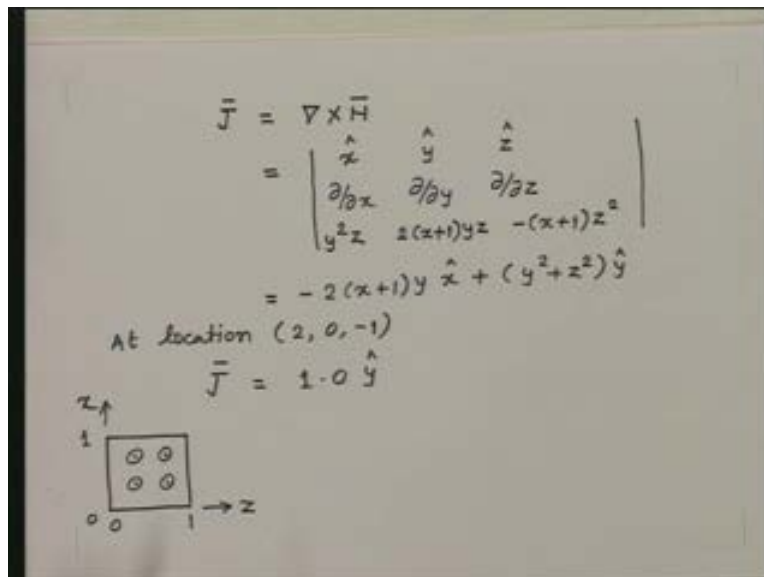 J̄ = ∇ × H̄
= | x̂ ŷ ẑ |
∂/∂x ∂/∂y ∂/∂z
y²z 2(x+1)yz -(x+1)z²
= -2(x+1)y x̂ + (y²+z²) ŷ
At location (2, 0, -1)
J̄ = 1.0 ŷ
x ↑
1
0 0 1 → z